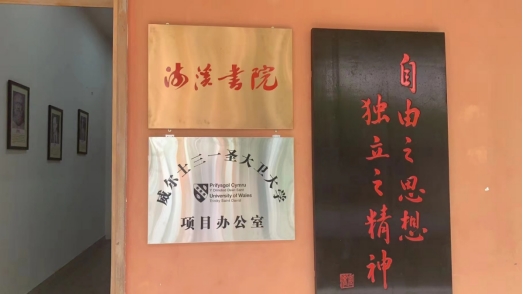 書院
威尔士三一圣大卫大学
Prifysgol Cymru
Y Drindod Dewi Sant
University of Wales
Trinity Saint David
项目办公室
自由之思想
独立之精神